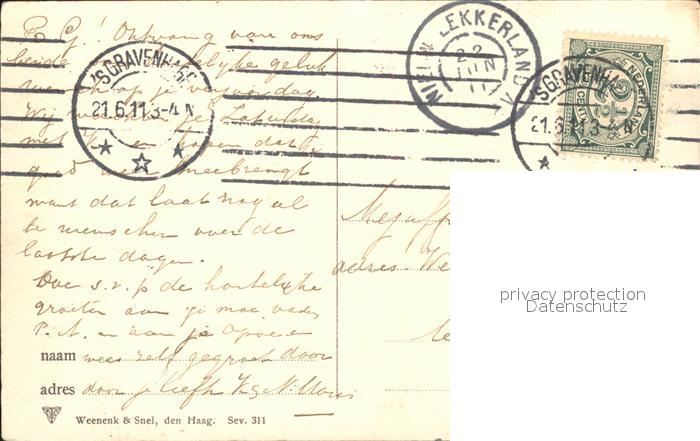 P. G! Ontvang van ons
beide de hartelijke geluk
wensch op je verjaardag
Wij Zaturdag
met dat je
goed meebrengt
want dat laat nog al
te wenschen over de
laatste dagen.
Doe s.v.p de hartelijke
groeten aan je moe, vader
P. A. en aan je Opoe en
naam wees zelf gegroet door
adres door je liefh
Weenenk & Snel, den Haag. Sev. 311
'SGRAVENHAGE
21.6.11 3-4 N
NIEUW LEKKERLAND
22 JUN 11
'SGRAVENHAGE
21.6.11 3-4 N
NEDERLAND
2½ CENT
Mejuff
adres We
privacy protection
Datenschutz